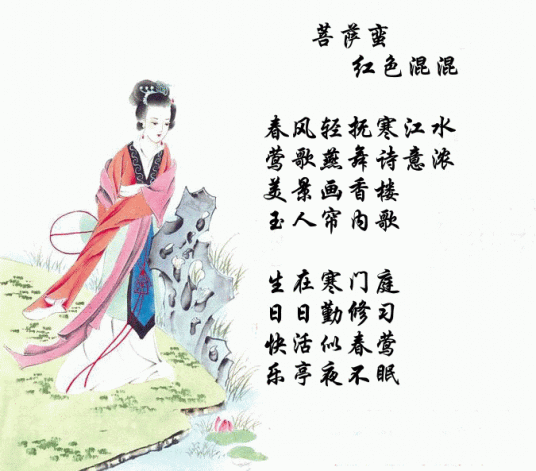 菩萨蛮
红色混混
春风轻抚寒江水
莺歌燕舞诗意浓
美景画香楼
玉人帘内歌
生在寒门庭
日日勤修习
快活似春莺
乐亭夜不眠